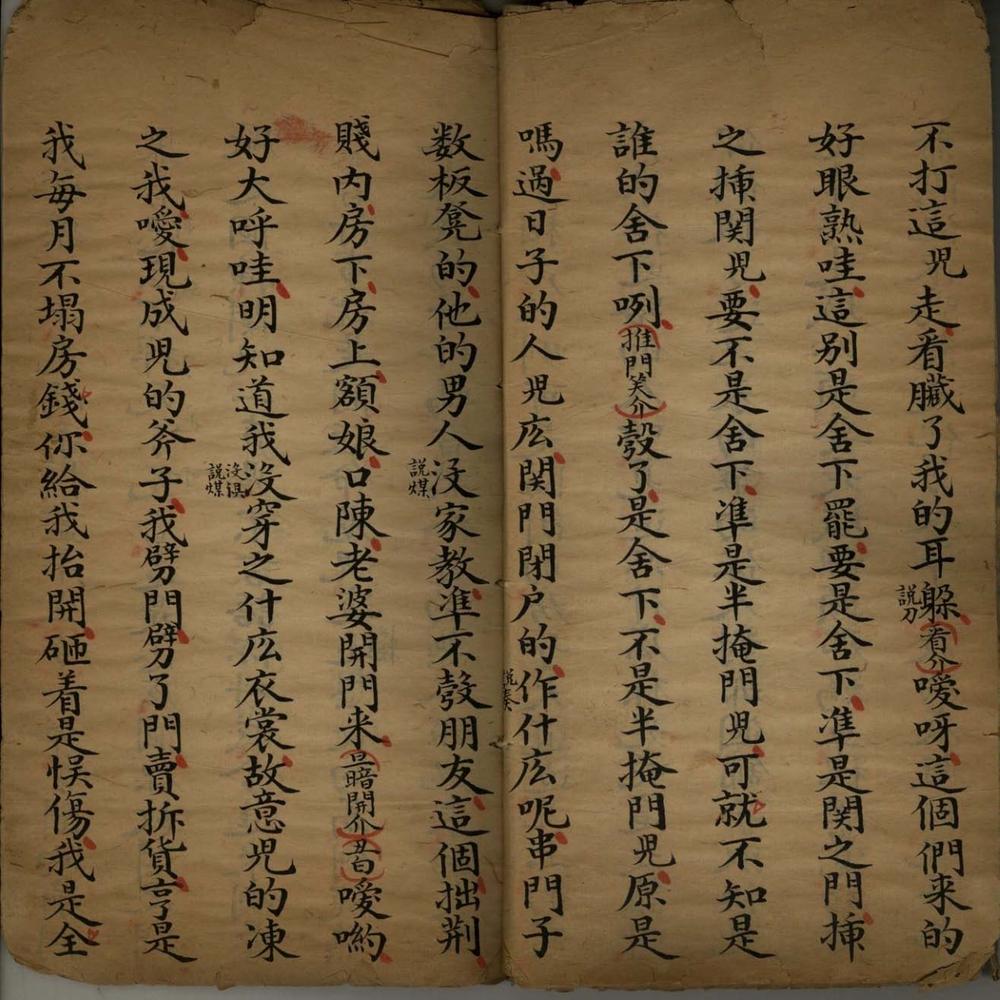 不打這児走看臟了我的耳躲說刀看介噯呀這個們来的
好眼熟哇這别是舍下罷要是舍下凖是関之門揷
之揷関児要不是舍下凖是半掩門児可就不知是
誰的舍下咧推門笑介彀了是舍下不是半掩門児原是
嗎過日子的人児庅関門閉户的作什庅呢串門子
数板凳的他的男人没家教凖不彀朋友這個拙荆
說煤
賤内房下房上額娘口陳老婆開門来旦暗開介丑白噯喲
好大呼哇明知道我没穿之什庅衣裳故意児的凍
說煤
之我噯現成児的斧子我劈門劈了門賣拆貨亨是
我每月不塌房錢你給我抬開砸着是悮傷我是全